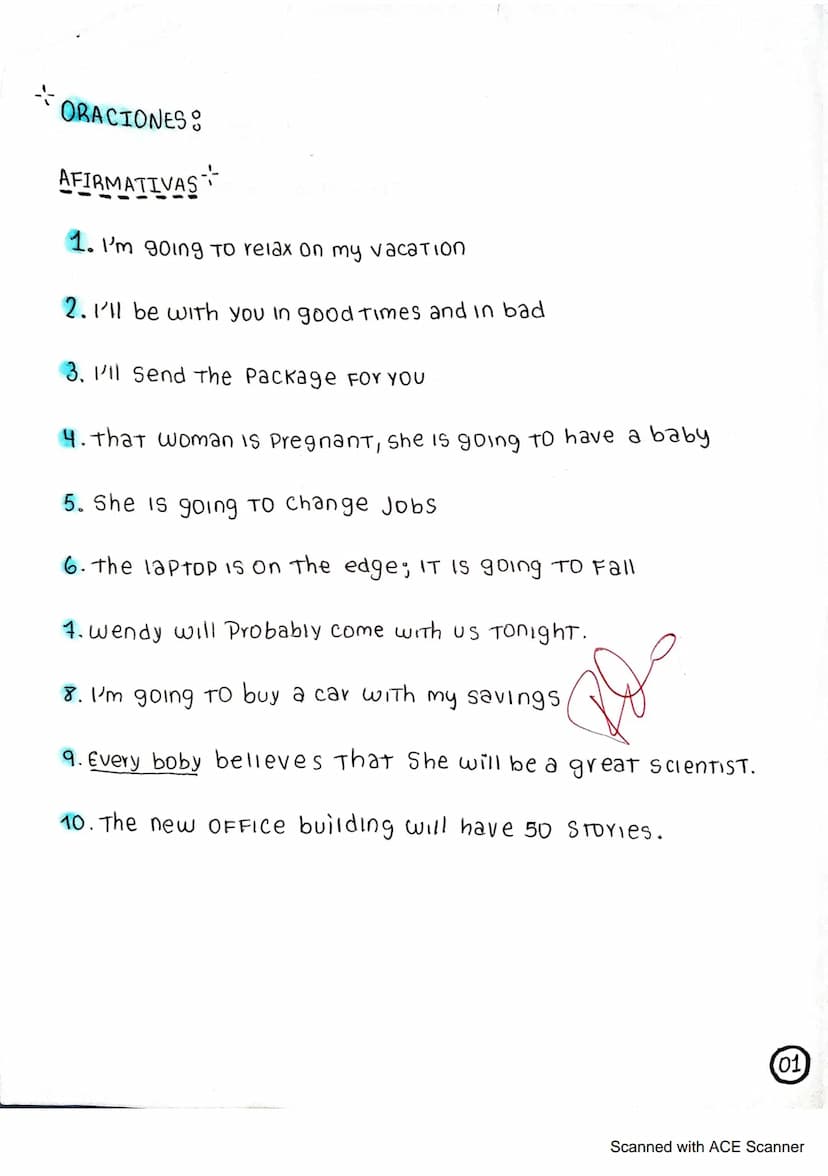 ORACIONES:
AFIRMATIVAS
1. I'm going to relax on my vacation
2. I'll be with you in good times and in bad
3. I'll send the package for you
4. that woman is pregnant, she is going to have a baby
5. She is going to change jobs
6. the laptop is on the edge; it is going to fall
7. wendy will probably come with us tonight.
8. I'm going to buy a car with my savings
9. Every boby believes that she will be a great scientist.
10. The new office building will have 50 stories.
01
Scanned with ACE Scanner